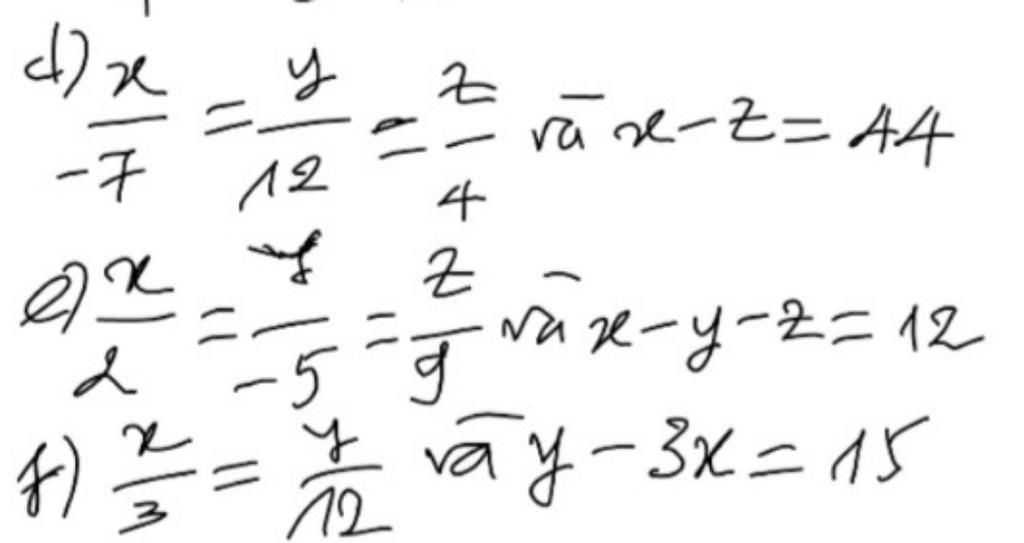 d) x/-7 = y/12 = z/4 và x - z = 44
e) x/2 = y/-5 = z/9 và x - y - z = 12
f) x/3 = y/12 và y - 3x = 15